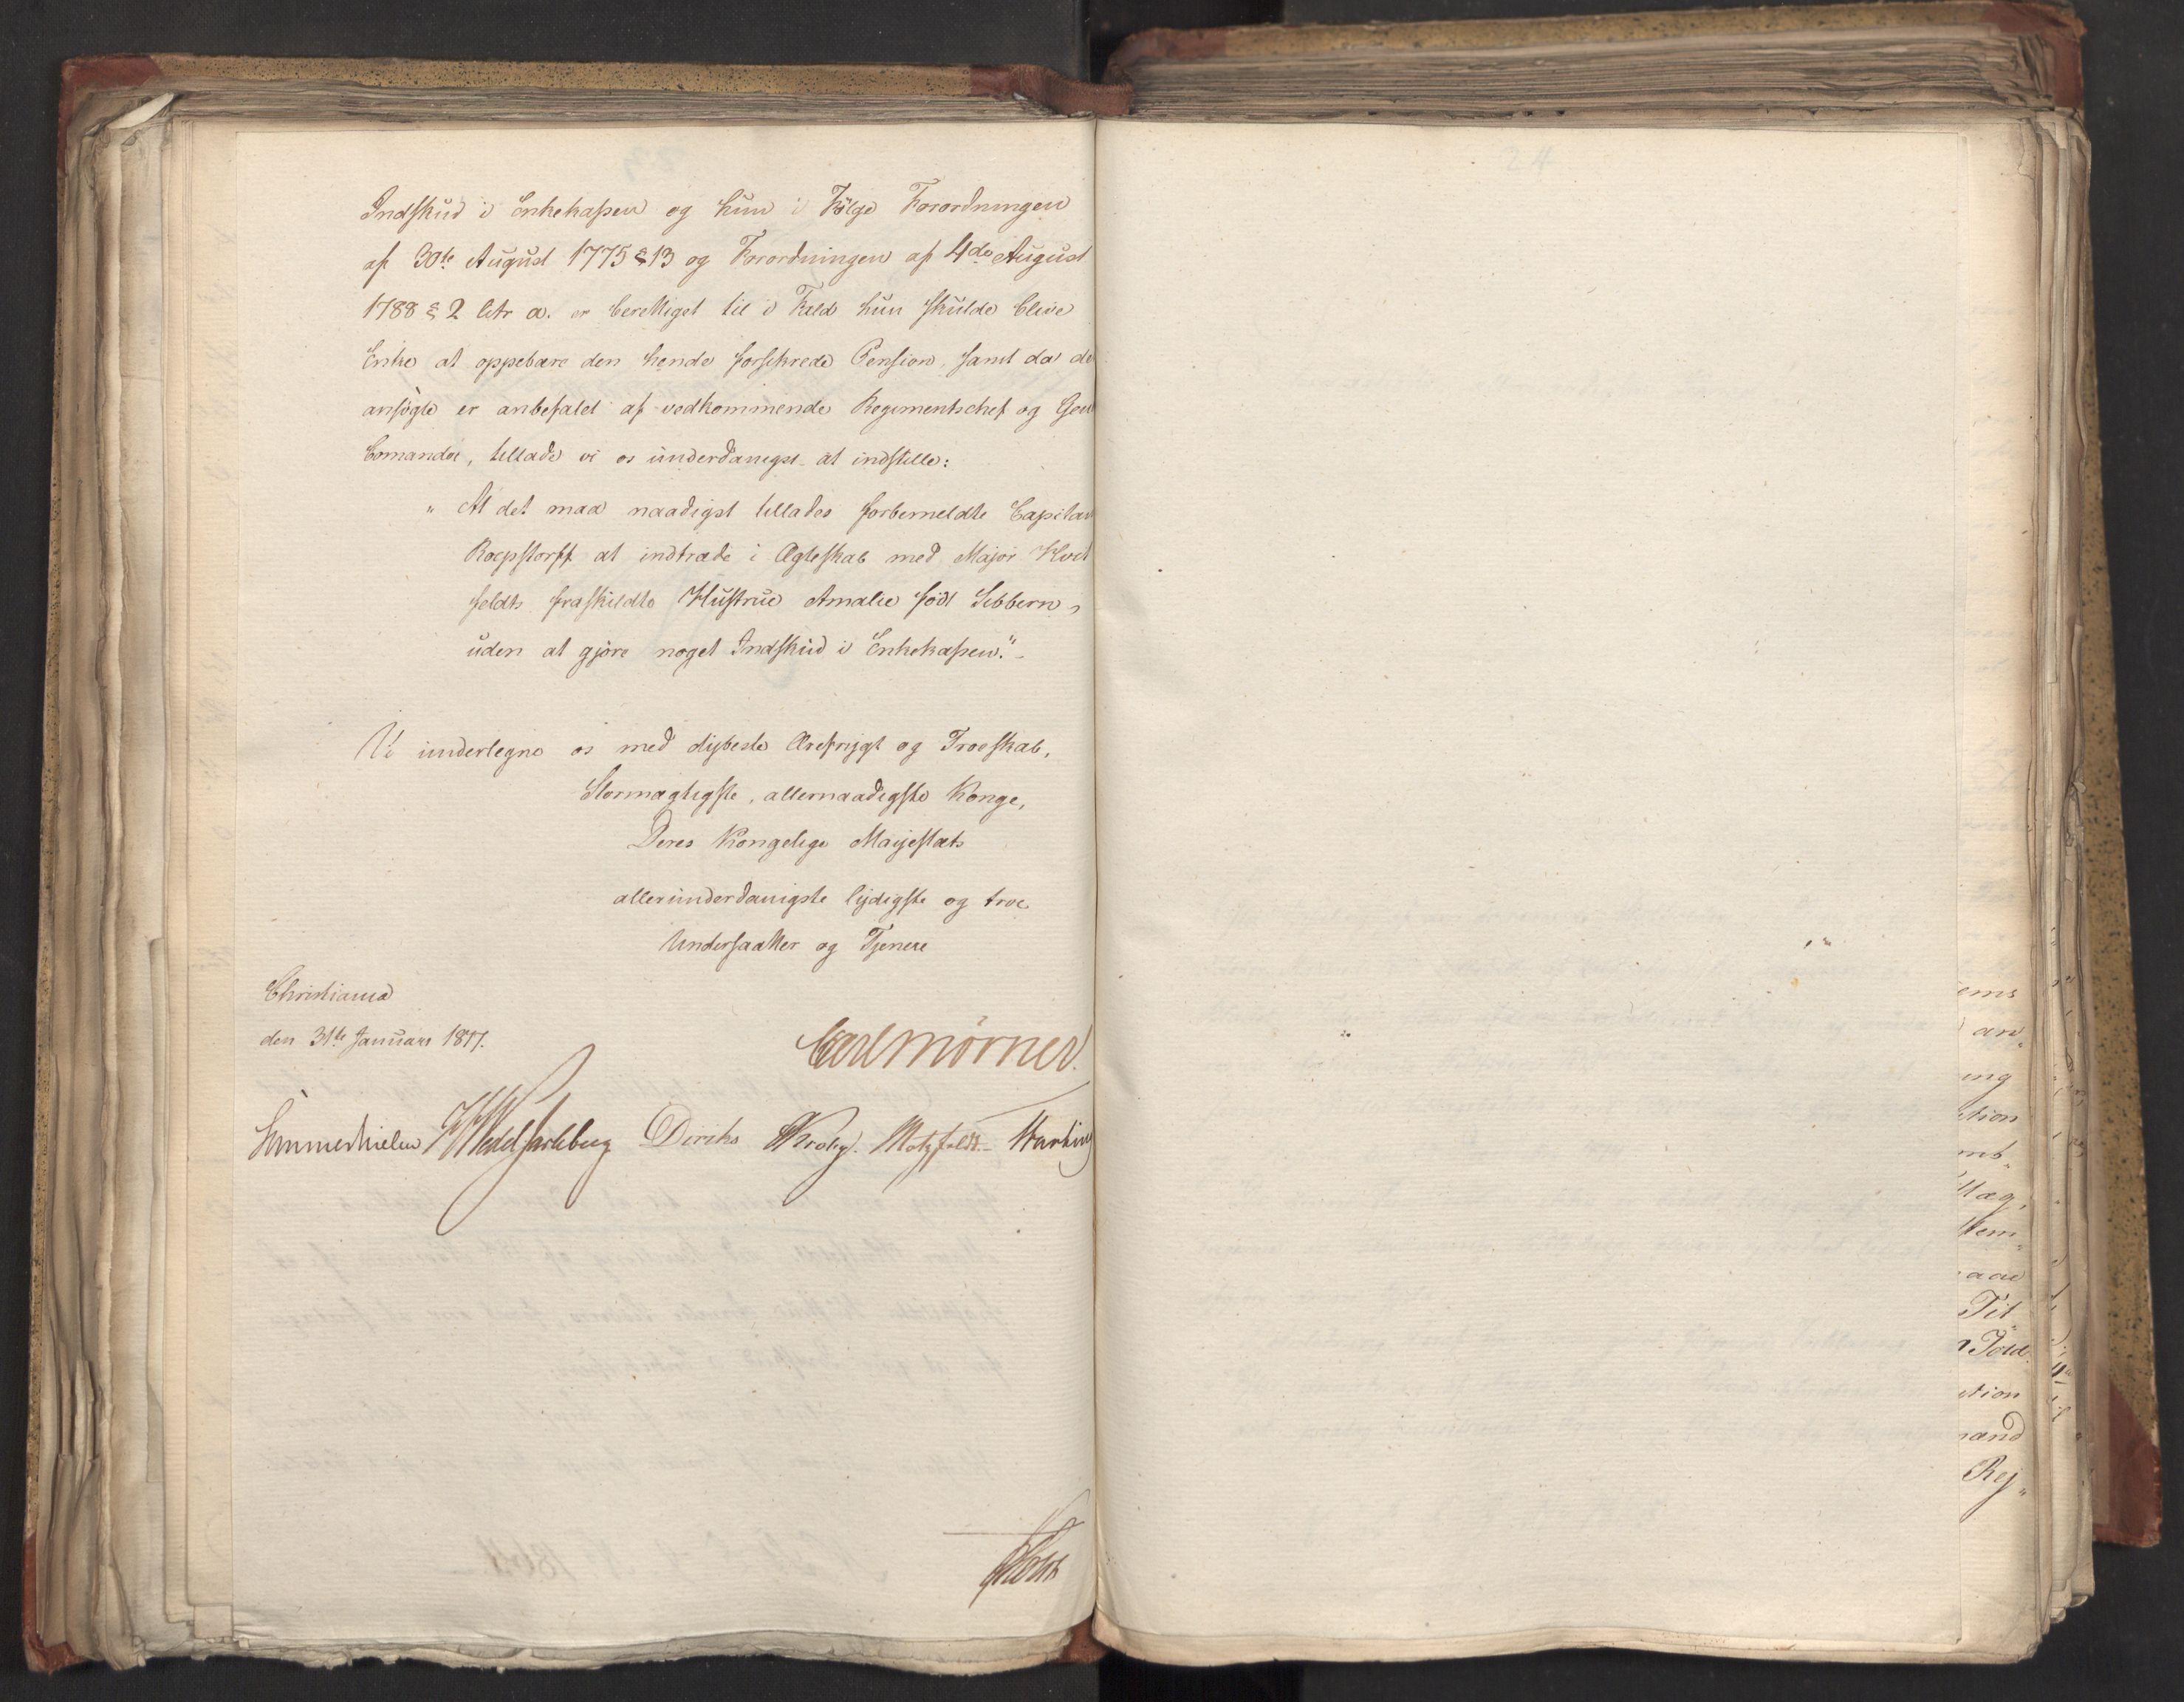 Indskud i Enkekassen og hun i Følge Forordningen
af 30te August 1775 § 13 og Forordningen af 4de August
1788 § 2 litr a. er berettiget til i Fald hun skulde blive
Enke at oppebære den hende forsikrede Pension, samt da de
ansøgte er anbefalet af vedkommende Regimentschef og Gen
Comandoe, tillade vi os underdanigst at indstille:
" At det maa naadigst tillades forbemeldte Capitain
Roepstorff at indtræde i Ægteskab med Major Hvit
feldts fraskildte Hustrue Amalie født Sibbern,
uden at gjøre noget Indskud i Enkekassen."
Vi undertegne os med dybeste Ærefrygt og Troeskab,
Stormægtigste, allernaadigste Konge,
Deres Kongelige Majestæts
allerunderdanigste lydigste og troe
Undersaatter og Tjenere
Christiania
den 31te Januar 1817.
Carl Mörner.
Sommerhielm Wedel Jarlsberg Diriks Krohg. Motzfeldt. Harbin
Holst
24
ems
an
ing
ction
mb
ttæg,
tem
aae
Tit
Told
ction
mand
Rej